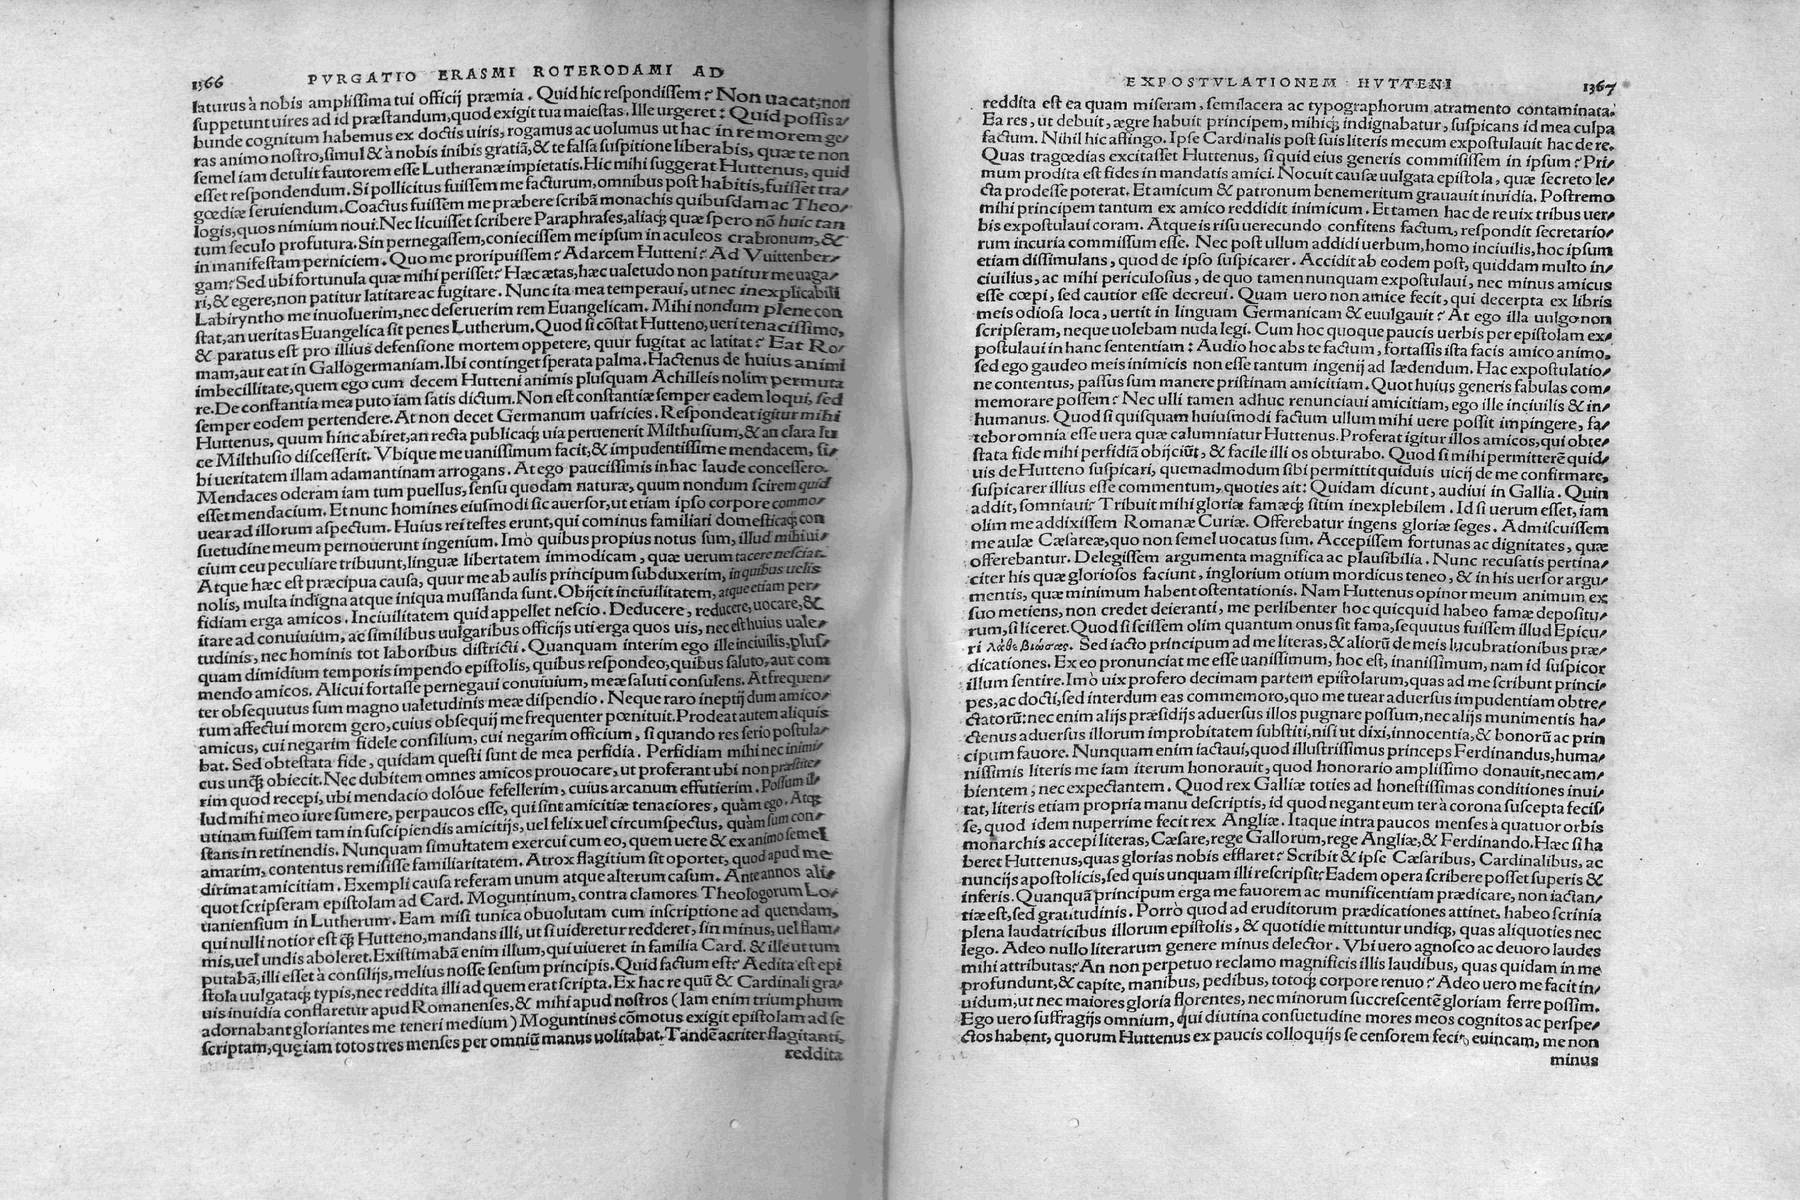 1366 PVRGATIO ERASMI ROTERODAMI AD
laturus à nobis amplissima tui officij præmia. Quid hic respondissem? Non uacat, non
suppetunt uires ad id præstandum, quod exigit tua maiestas. Ille urgeret: Quid possis a/
bunde cognitum habemus ex doctis uiris, rogamus ac uolumus ut hac in re morem ge/
ras animo nostro, simul & à nobis inibis gratiã, & te falsa suspitione liberabis, quæ te non
semel iam detulit fautorem esse Lutheranæ impietatis. Hic mihi suggerat Huttenus, quid
esset respondendum. Si pollicitus fuissem me facturum, omnibus post habitis, fuisset tra/
gœdiæ seruiendum. Coactus fuissem me præbere scribã monachis quibusdam ac Theo/
logis, quos nimium noui. Nec licuisset scribere Paraphrases, aliaq́; quæ spero nõ huic tan
tum seculo profutura. Sin pernegassem, coniecissem me ipsum in aculeos crabronum, &
in manifestam perniciem. Quo me proripuissem? Ad arcem Hutteni? Ad Vuittenber/
gam? Sed ubi fortunula quæ mihi perisset? Hæc ætas, hæc ualetudo non patitur me uaga/
ri, & egere, non patitur latitare ac fugitare. Nunc ita mea temperaui, ut nec inexplicabili
Labiryntho me inuoluerim, nec deseruerim rem Euangelicam. Mihi nondum plene con
stat, an ueritas Euangelica sit penes Lutherum. Quod si cõstat Hutteno, ueri tenacissimo,
& paratus est pro illius defensione mortem oppetere, quur fugitat ac latitat? Eat Ro/
mam, aut eat in Gallogermaniam. Ibi continget sperata palma. Hactenus de huius animi
imbecillitate, quem ego cum decem Hutteni animis plusquam Achilleis nolim permuta
re. De constantia mea puto iam satis dictum. Non est constantiæ semper eadem loqui, sed
semper eodem pertendere. At non decet Germanum uafricies. Respondeat igitur mihi
Huttenus, quum hinc abiret, an recta publicaq́; uia peruenerit Milthusium, & an clara lu
ce Milthusio discesserit. Vbique me uanissimum facit, & impudentissime mendacem, si/
bi ueritatem illam adamantinam arrogans. At ego paucissimis in hac laude concessero.
Mendaces oderam iam tum puellus, sensu quodam naturæ, quum nondum scirem quid
esset mendacium. Et nunc homines eiusmodi sic auersor, ut etiam ipso corpore commo/
uear ad illorum aspectum. Huius rei testes erunt, qui cominus familiari domesticaq́; con
suetudine meum pernouerunt ingenium. Imò quibus propius notus sum, illud mihi ui/
cium ceu peculiare tribuunt, linguæ libertatem immodicam, quæ uerum tacere nesciat.
Atque hæc est præcipua causa, quur me ab aulis principum subduxerim, in quibus uelis
nolis, multa indigna atque iniqua mussanda sunt. Obijcit inciuilitatem, atque etiam per/
fidiam erga amicos. Inciuilitatem quid appellet nescio. Deducere, reducere, uocare, &
itare ad conuiuium, ac similibus uulgaribus officijs uti erga quos uis, nec est huius uale/
tudinis, nec hominis tot laboribus districti. Quanquam interim ego ille inciuilis, plus/
quam dimidium temporis impendo epistolis, quibus respondeo, quibus saluto, aut com
mendo amicos. Alicui fortasse pernegaui conuiuium, meæ saluti consulens. At frequen/
ter obsequutus sum magno ualetudinis meæ dispendio. Neque raro ineptij dum amico/
rum affectui morem gero, cuius obsequij me frequenter pœnituit. Prodeat autem aliquis
amicus, cui negarim fidele consilium, cui negarim officium, si quando res serio postula/
bat. Sed obtestata fide, quidam questi sunt de mea perfidia. Perfidiam mihi nec inimi/
cus unq̃; obiecit. Nec dubitem omnes amicos prouocare, ut proferant ubi non præstite/
rim quod recepi, ubi mendacio doloúe fefellerim, cuius arcanum effutierim. Possum il/
lud mihi meo iure sumere, perpaucos esse, qui sint amicitiæ tenaciores, quàm ego. Atq́;
utinam fuissem tam in suscipiendis amicitijs, uel felix uel circumspectus, quàm sum con/
stans in retinendis. Nunquam simultatem exercui cum eo, quem uere & ex animo semel
amarim, contentus remisisse familiaritatem. Atrox flagitium sit oportet, quod apud me
dirimat amicitiam. Exempli causa referam unum atque alterum casum. Ante annos ali/
quot scripseram epistolam ad Card. Moguntinum, contra clamores Theologorum Lo/
uaniensium in Lutherum. Eam misi tunica obuolutam cum inscriptione ad quendam,
qui nulli notior est q̃; Hutteno, mandans illi, ut si uideretur redderet, sin minus, uel flam/
mis, uel undis aboleret. Existimabã enim illum, qui uiueret in familia Card. & ille ut tum
putabã, illi esset à consilijs, melius nosse sensum principis. Quid factum est? Aedita est epi
stola uulgataq́; typis, nec reddita illi ad quem erat scripta. Ex hac re quũ & Cardinali gra/
uis inuidia conflaretur apud Romanenses, & mihi apud nostros (Iam enim triumphum
adornabant gloriantes me teneri medium) Moguntinus cõmotus exigit epistolam ad se
scriptam, quę iam totos tres menses per omniũ manus uolitabat. Tandẽ acriter flagitanti,
reddita
EXPOSTVLATIONEM HVTTENI 1367
reddita est ea quam miseram, semilacera ac typographorum atramento contaminata.
Ea res, ut debuit, ægre habuit principem, mihiq́; indignabatur, suspicans id mea culpa
factum. Nihil hic affingo. Ipse Cardinalis post suis literis mecum expostulauit hac de re.
Quas tragœdias excitasset Huttenus, si quid eius generis commisissem in ipsum? Pri/
mum prodita est fides in mandatis amici. Nocuit causæ uulgata epistola, quæ secreto le/
cta prodesse poterat. Et amicum & patronum benemeritum grauauit inuidia. Postremo
mihi principem tantum ex amico reddidit inimicum. Et tamen hac de re uix tribus uer/
bis expostulaui coram. Atque is risu uerecundo confitens factum, respondit secretario/
rum incuria commissum esse. Nec post ullum addidi uerbum, homo inciuilis, hoc ipsum
etiam dissimulans, quod de ipso suspicarer. Accidit ab eodem post, quiddam multo in/
ciuilius, ac mihi periculosius, de quo tamen nunquam expostulaui, nec minus amicus
esse cœpi, sed cautior esse decreui. Quam uero non amice fecit, qui decerpta ex libris
meis odiosa loca, uertit in linguam Germanicam & euulgauit? At ego illa uulgo non
scripseram, neque uolebam nuda legi. Cum hoc quoque paucis uerbis per epistolam ex/
postulaui in hanc sententiam: Audio hoc abs te factum, fortassis ista facis amico animo,
sed ego gaudeo meis inimicis non esse tantum ingenij ad lædendum. Hac expostulatio/
ne contentus, passus sum manere pristinam amicitiam. Quot huius generis fabulas com/
memorare possem? Nec ulli tamen adhuc renunciaui amicitiam, ego ille inciuilis & in/
humanus. Quod si quisquam huiusmodi factum ullum mihi uere possit impingere, fa/
tebor omnia esse uera quæ calumniatur Huttenus. Proferat igitur illos amicos, qui obte/
stata fide mihi perfidiã obijciũt, & facile illi os obturabo. Quod si mihi permitterẽ quid/
uis de Hutteno suspicari, quemadmodum sibi permittit quiduis uicij de me confirmare,
suspicarer illius esse commentum, quoties ait: Quidam dicunt, audiui in Gallia. Quin
addit, somniaui? Tribuit mihi gloriæ famæq́; sitim inexplebilem. Id si uerum esset, iam
olim me addixissem Romanæ Curiæ. Offerebatur ingens gloriæ seges. Admiscuissem
me aulæ Cæsareæ, quo non semel uocatus sum. Accepissem fortunas ac dignitates, quæ
offerebantur. Delegissem argumenta magnifica ac plausibilia. Nunc recusatis pertina/
citer his quæ gloriosos faciunt, inglorium otium mordicus teneo, & in his uersor argu/
mentis, quæ minimum habent ostentationis. Nam Huttenus opinor meum animum ex
suo metiens, non credet deieranti, me perlibenter hoc quicquid habeo famæ depositu/
rum, si liceret. Quod si scissem olim quantum onus sit fama, sequutus fuissem illud Epicu/
ri λάθε βιώσας. Sed iacto principum ad me literas, & aliorũ de meis lucubrationibus præ/
dicationes. Ex eo pronunciat me esse uanissimum, hoc est, inanissimum, nam id suspicor
illum sentire. Imò uix profero decimam partem epistolarum, quas ad me scribunt princi/
pes, ac docti, sed interdum eas commemoro, quo me tuear aduersus impudentiam obtre/
ctatorũ: nec enim alijs præsidijs aduersus illos pugnare possum, nec alijs munimentis ha/
ctenus aduersus illorum improbitatem substiti, nisi ut dixi, innocentia, & bonorũ ac prin
cipum fauore. Nunquam enim iactaui, quod illustrissimus princeps Ferdinandus, huma/
nissimis literis me iam iterum honorauit, quod honorario amplissimo donauit, nec am/
bientem, nec expectantem. Quod rex Galliæ toties ad honestissimas conditiones inui/
tat, literis etiam propria manu descriptis, id quod negant eum ter à corona suscepta fecis/
se, quod idem nuperrime fecit rex Angliæ. Itaque intra paucos menses à quatuor orbis
monarchis accepi literas, Cæsare, rege Gallorum, rege Angliæ, & Ferdinando. Hæc si ha
beret Huttenus, quas glorias nobis efflaret? Scribit & ipse Cæsaribus, Cardinalibus, ac
nuncijs apostolicis, sed quis unquam illi rescripsit? Eadem opera scribere posset superis &
inferis. Quanquã principum erga me fauorem ac munificentiam prædicare, non iactan/
tiæ est, sed gratitudinis. Porrò quod ad eruditorum prædicationes attinet, habeo scrinia
plena laudatricibus illorum epistolis, & quotidie mittuntur undiq́;, quas aliquoties nec
lego. Adeo nullo literarum genere minus delector. Vbi uero agnosco ac deuoro laudes
mihi attributas? An non perpetuo reclamo magnificis illis laudibus, quas quidam in me
profundunt, & capite, manibus, pedibus, totoq́; corpore renuo? Adeo uero me facit in/
uidum, ut nec maiores gloria florentes, nec minorum succrescentẽ gloriam ferre possim.
Ego uero suffragijs omnium, qui diutina consuetudine mores meos cognitos ac perspe/
ctos habent, quorum Huttenus ex paucis colloquijs se censorem fecit, euincam, me non
minus